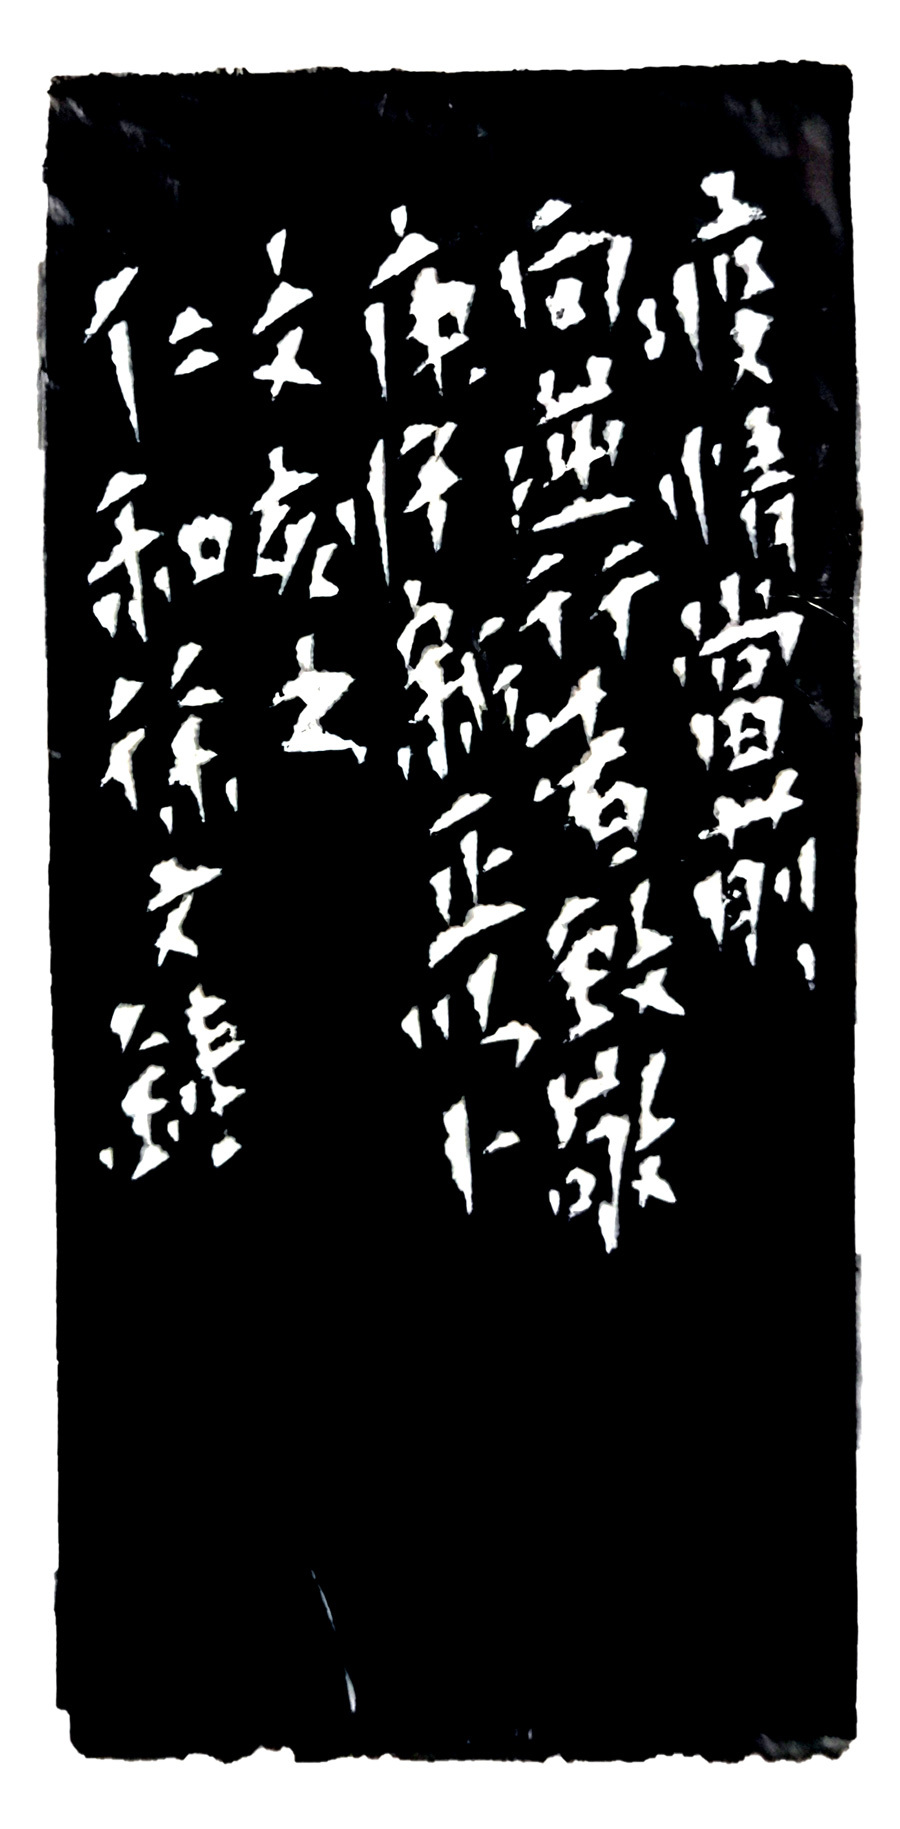 疫情當前
向逆行者致敬
庚子新正以卜
文刻之
仁和徐文